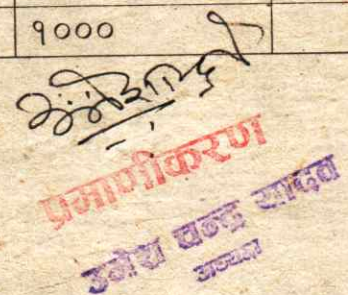 १०००
प्रमाणीकरण
उमेश चन्द्र यादव
अध्यक्ष